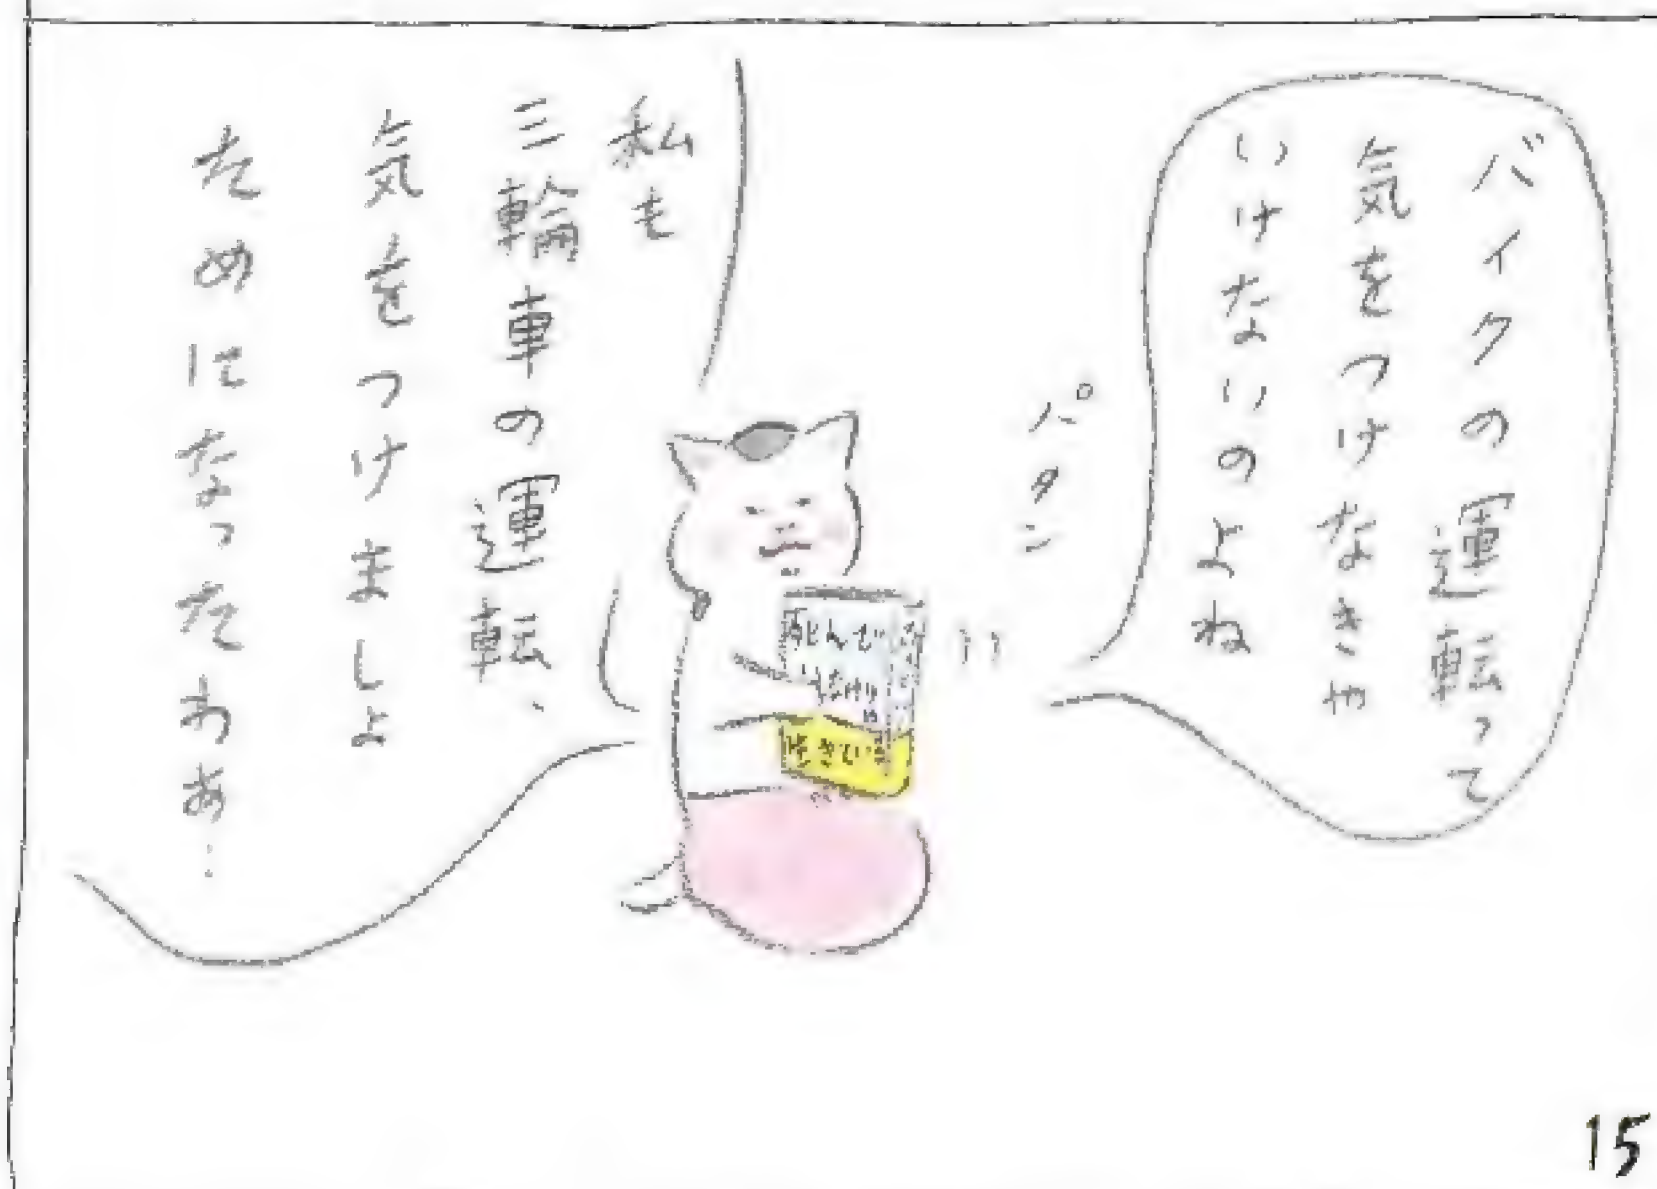 バイクの運転って
気をつけなきゃ
いけないのよね
パタン
私も
三輪車の運転、
気をつけましょ
ためになったわぁ…
15